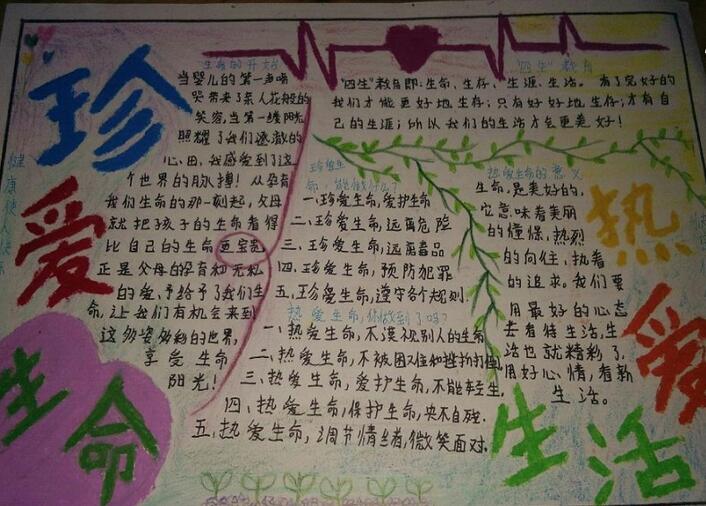 珍
爱
生
命
健康使人快乐
生命的开始
当婴儿的第一声啼
哭带来了亲人花般的
笑容,当第一缕阳光
照耀了我们逐激的
心田,我感受到了这
个世界的脉搏!从孕育
我们生命的那一刻起,父母
就把孩子的生命看得
比自己的生命更宝贵
正是父母的孕育和无私
的爱,予给予了我们生
命,让我们有机会来到
这多姿多彩的世界,
享受生命
阳光!
"四生"教育
"四生"教育即:生命、生存、生涯、生活。有了完好的
我们才能更好地生存;只有好好地生存;才有自
己的生涯;所以我们的生活才会更美好!
珍爱生
命,能做什么?
一、珍爱生命,爱护生命
二、珍爱生命,远离危险
三、珍爱生命,远离毒品
四、珍爱生命,预防犯罪
五、珍爱生命,遵守各个规则.
热爱生命,你做到了吗?
一、热爱生命,不漠视别人的生命
二、热爱生命,不被困难和挫折打倒
三、热爱生命,爱护生命,不能轻生.
四、热爱生命,保护生命,决不自残.
五、热爱生命,调节情绪,微笑面对.
热爱生命的意义
生命,是美好的,
它意味着美丽
的憧憬,热烈
的向往,执着
的追求。我们要
用最好的心态
去看待生活,生
活也就精彩了,
用好心情,看新
生活。
热
爱
生
活